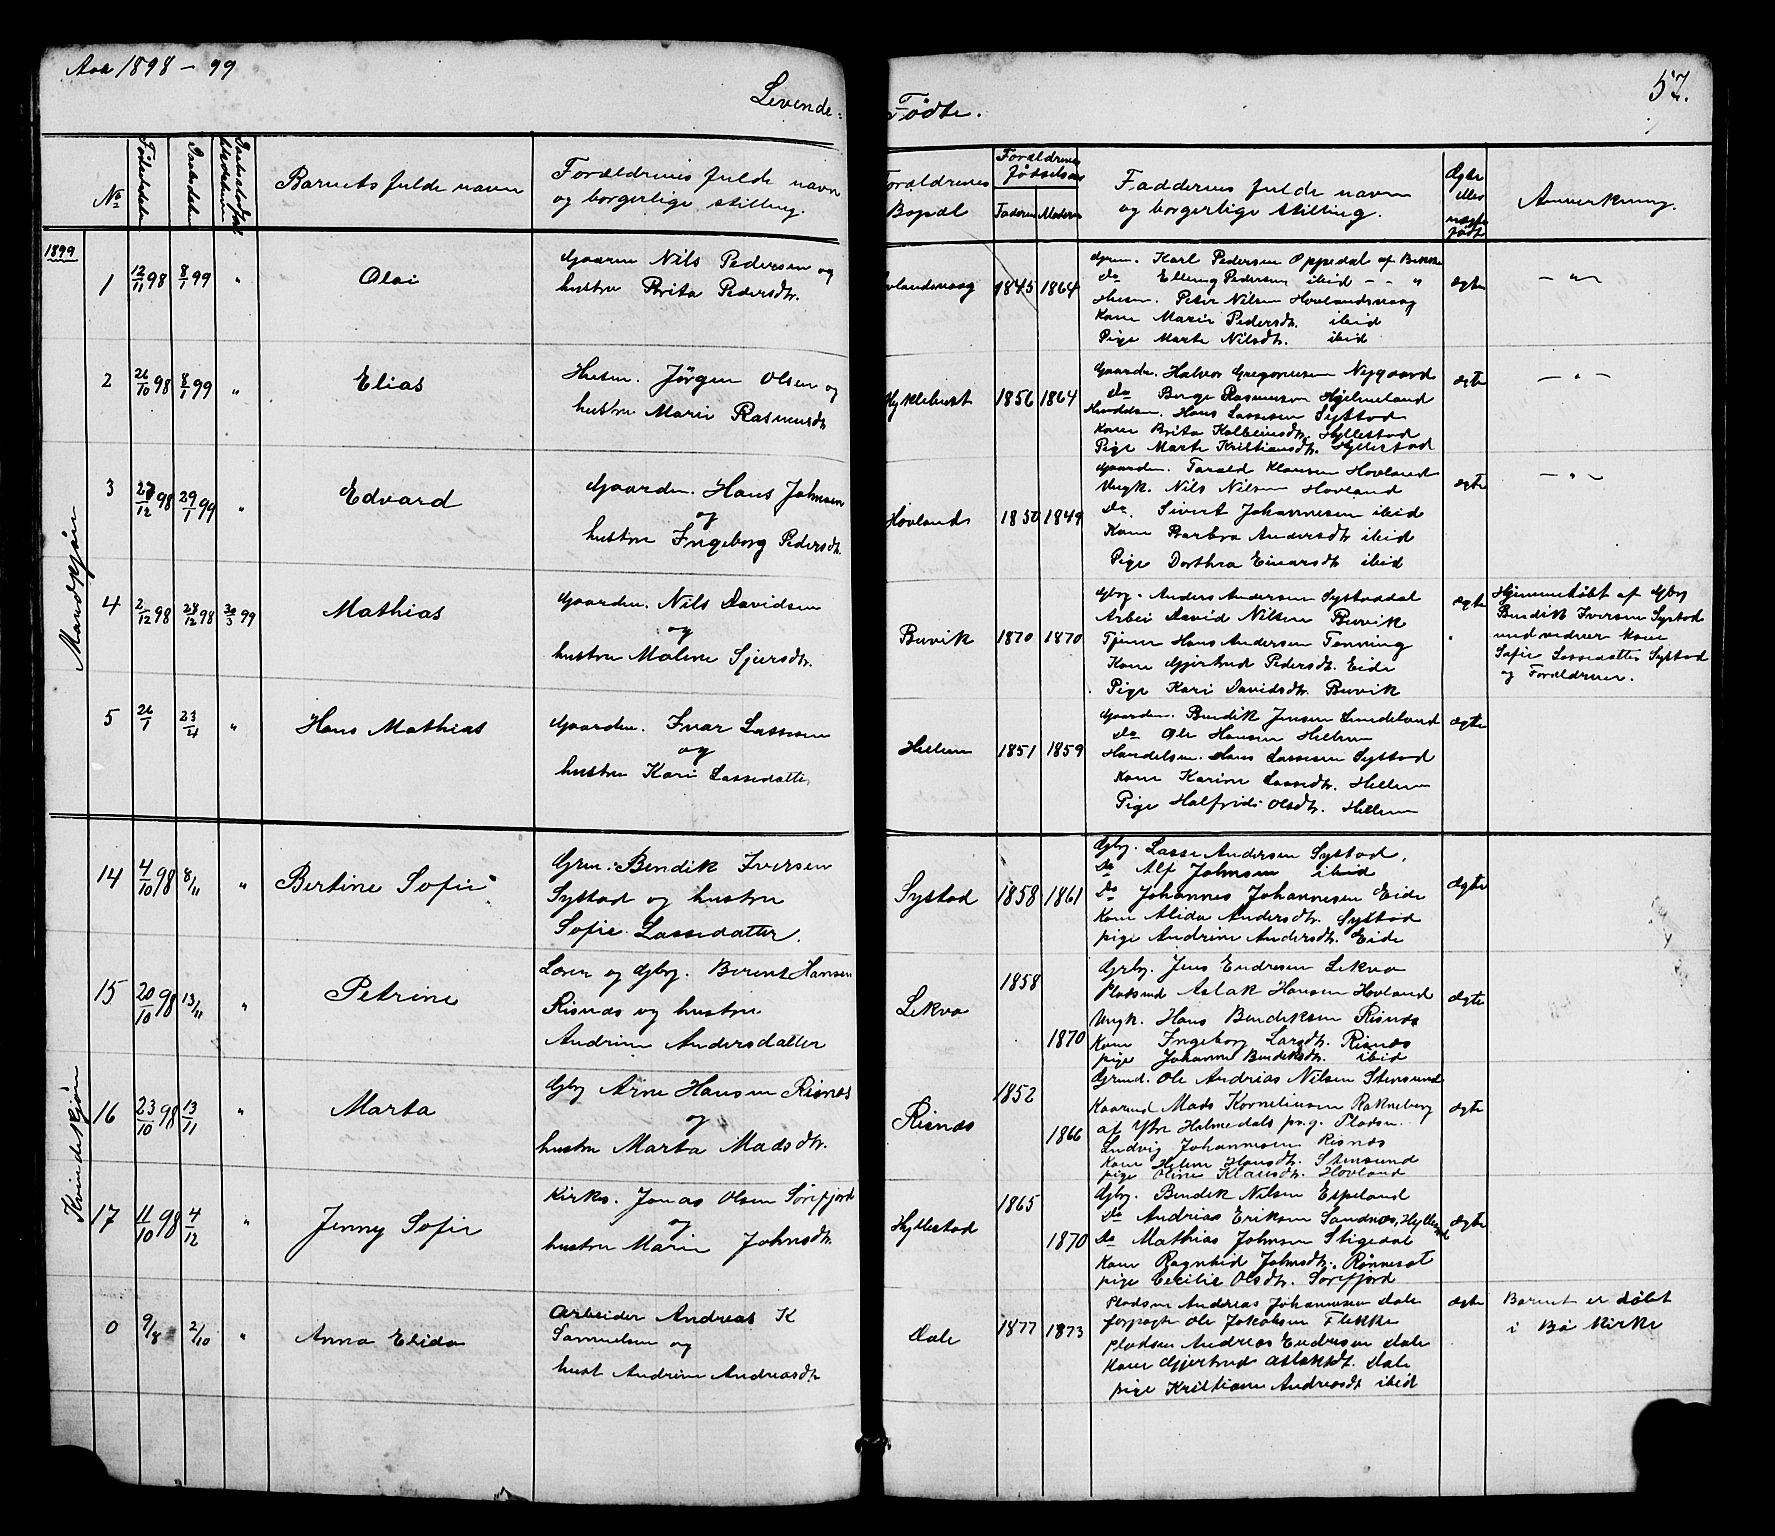 Aar 1898 - 99
57.
Levende-
Fødte.
No
Fødselsdatum
Daabsdatum
Barnets fulde navn
Forældrenes fulde navn
og borgerlige stilling.
Forældrenes
Bopæl
Forældrenes
fødselsaar
Faderen Moderen
Faddernes fulde navn
og borgerlige stilling.
Ægte
eller
uægte
født
Anmerkning.
1899
Mandkjøn
1 12/11 98 8/1 99 " Olai
Gaarm Nils Pedersen og
hustru Brita Pedersdtr.
1845 1864
Grm. Karl Pedersen Oppedal af Bekke
do Elling Pedersen ibid - - "
Husm. Peter Nilsen Hovlandsvaag
Kone Marie Pedersdtr. ibid
Pige Marte Nilsdtr. ibid
ægte
- " -
2 26/10 98 8/1 99 " Elias
Husm. Jørgen Olsen og
hustru Marie Rasmusdtr
Myklebust 1856 1864
Gaardm. Halvor Gregoriusen Nygaard
do Børge Rasmusson Hjelmeland
Handelsm. Hans Lassesen Systad
Kone Brita Kolbeinsdtr. Hyllestad
Pige Marte Kristiansdtr. Hyllestad
ægte
- " -
3 27/12 98 29/1 99 " Edvard
Gaardm. Hans Johnsen
og
hustru Ingeborg Pedersdtr.
Hovland 1850 1849
Gaardm. Tarald Klausen Hovland
Ungk. Nils Nilsen Hovland
do. Sivert Johannesen ibid
Kone Barbra Andersdtr ibid
Pige Dorthea Einarsdtr ibid
ægte
- " -
4 2/12 98 28/12 98 30/3 99 Mathias
Gaardm. Nils Davidsen
og
hustru Malene Sjursdtr.
Buvik 1870 1870
Gbrg. Anders Andersen Systaddal
Arbei David Nilsen Buvik
Tjener Hans Andersen Tenning
Kone Gjertrud Pedersdtr. Eide
Pige Kari Davidsdtr. Buvik
ægte
Hjemmedøbt af Gbrg
Bendik Iversen Systad
med vedner kone
Sofie Lassedatter Systad
og Forældrene.
5 26/1 23/4 " Hans Mathias
Gaardm. Ivar Lassesen
og
hustru Kari Lassedatter
Hellem 1851 1859
Gaardm. Bendik Jensen Sundelvand
do Ole Hansen Hellem
Handelsm. Hans Lassesen Systad
Kone Karine Lassedtr. Hellem
Pige Halfrid Olsdtr. Hellem
ægte
Kvindekjøn
14 4/10 98 8/11 " Bertine Sofie
Grm. Bendik Iversen
Systad og hustru
Sofie Lassedatter.
Systad 1858 1861
Gbrg. Lasse Andersen Systad,
do Alf Johnsen ibid
do Johannes Johannesen Eide
Kone Alida Andersdtr. Systad
pige Andrine Andersdtr. Eide
ægte
15 20/10 98 13/11 " Petrine
Lærer og Gbrg. Berent Hansen
Risnæs og hustru
Andrine Andersdatter
Lekva 1858 1870
Gbrg. Jens Endresen Lekva
Pladsmd Aslak Hansen Hovland
Ungk. Hans Bendiksen Risnæs
Kone Ingeborg Larsdtr. Risnæs
pige Johanne Bendiksdtr. ibid
ægte
16 23/10 98 13/11 " Marta
Gbg Arne Hansen Risnæs
og
hustru Marta Madsdtr.
Risnæs 1852 1866
Grmd. Ole Andreas Nilsen Stensund
Kaarmd Mads Korneliusen Rakneberg
af Ytre Holmedals prg. Pladsm.
Ludvig Johannesen Risnæs
Kone Helene Hansdtr. Stensund
pige Oline Klausdtr. Hovland
ægte
17 11/10 98 4/12 " Jenny Sofie
Kirks. Jonas Olsen Sørefjord
og
hustru Marie Johnsdtr.
Hyllestad 1865 1870
Gbrg. Bendik Nilsen Espeland
do Andreas Eriksen Sandnæs, Hyllestad
do Mathias Johnsen Stigedal
Kone Ragnhild Johnsdtr. Rønneset
pige Cecilie Olsdtr. Sørefjord
ægte
0 9/8 2/10 " Anna Elida
Arbeider Andreas K
Samuelsen og
hust Andrine Andreasdtr
Dale 1877 1873
Pladsm Andreas Johannesen Dale
forpagt Ole Jakobsen Flekke
pladsm Andreas Endresen Dale
Kone Gjertrud Aslaksdt. Dale
pige Kristiane Andreasdt ibid
ægte
Barnet er døbt
i Bø Kirke